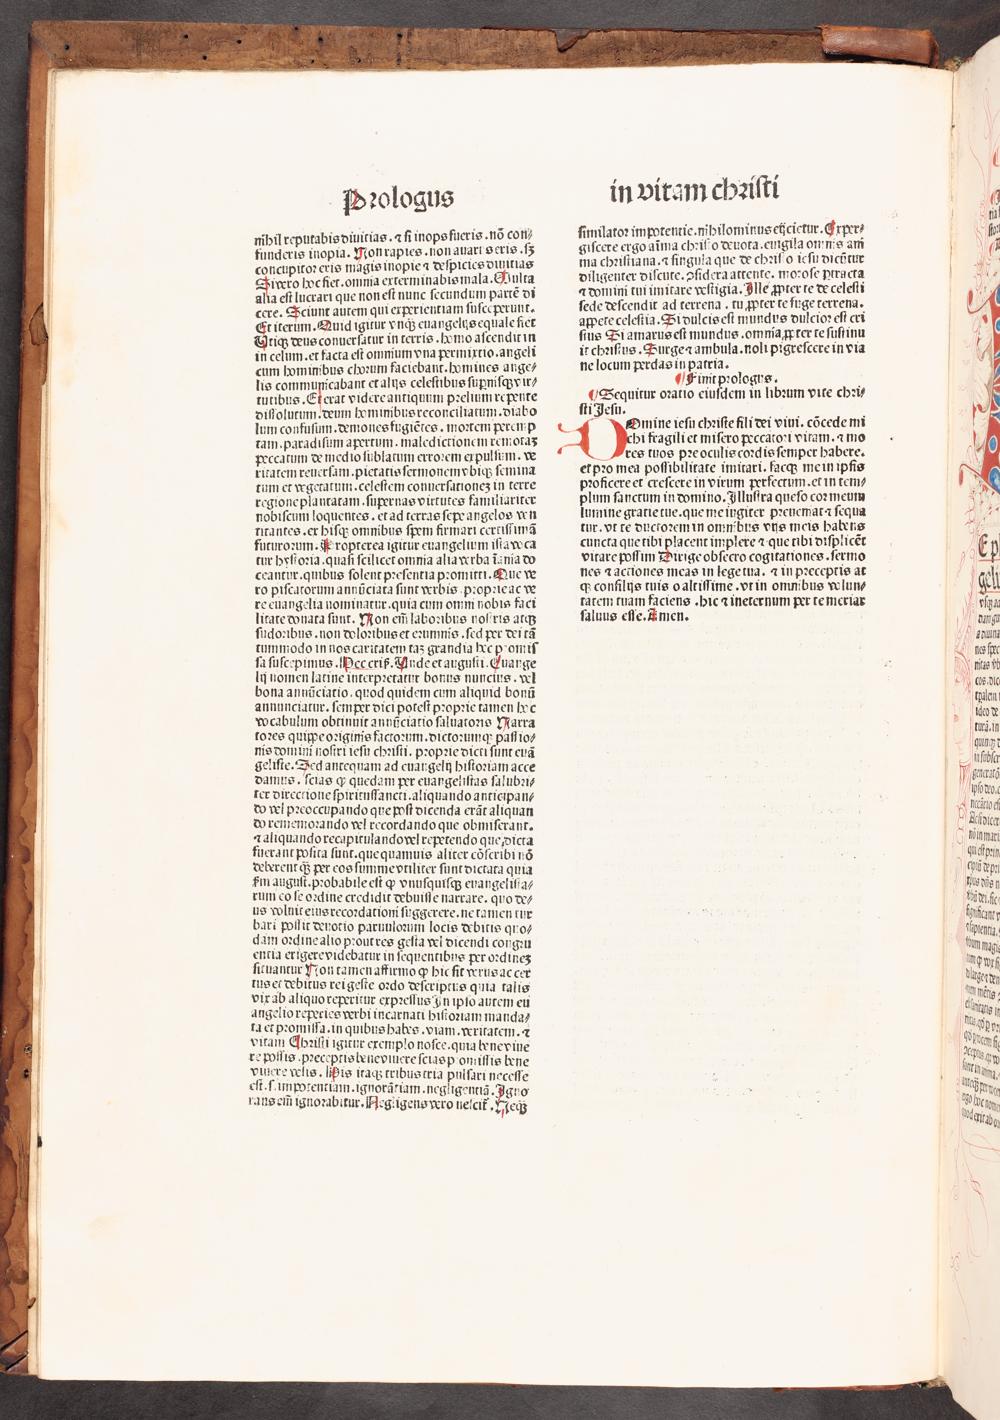 Prologus
in vitam christi
nihil reputabis diuitias. ⁊ si inops fueris. nō con⸗
funderis inopia. Non rapies. non auari seris. sꝫ
concupitor eris magis inopie ⁊ despicies diuitias
Si vero hoc fiet. omnia exterminabis mala. Multa
alia est lucrari que non est nunc secundum partē di
cere. Sciunt autem qui experientiam susceperunt.
Et iterum. Quid igitur vnqꝫ euangelijs equale fiet
Utiqꝫ deus conuersatur in terris. homo ascendit in
in celum. et facta est omnium vna permixtio. angeli
cum hominibus chorum faciebant. homines ange⸗
lis communicabant et alijs celestibus supnisqꝫ vir⸗
tutibus. Et erat videre antiquum prelium repente
dissolutum. deum hominibus reconciliatum. diabo
lum confusum. demones fugiētes. mortem perem p
tam. paradisum apertum. maledictionem remotaꝫ
peccatum de medio sublatum errorem expulsum. ve
ritatem reuersam. pietatis sermonem vbiqꝫ semina
tum et vegetatum. celestem conuersationeꝫ in terre
regione plantatam. supernas virtutes familiariter
nobiscum loquentes. et ad terras sepe angelos ven
titantes. ex hisqꝫ omnibus spem firmari certissimā
futurorum. Propterea igitur euangelium ista voca
tur hystoria. quasi scilicet omnia alia verba inania do
ceantur. quibus solent presentia promitti. Que ve
ro piscatorum annūciata sunt verbis. proprie ac ve
re euangelia nominatur. quia cum omni nobis faci
litate donata sunt. Non em̄ laboribus nostris atqꝫ
sudoribus. non doloribus et erumnis. sed per dei tā
tummodo in nos caritatem taꝫ grandia hec promis
sa suscepimus. Hec cris. Unde et augusti. Euange
lij nomen latine interpretatur bonus nuncius. vel
bona annūciatio. quod quidem cum aliquid bonū
annunciatur. semper dici potest proprie tamen hoc
vocabulum obtinuit annūciatio saluatoris Narra
tores quippe originis factorum. dictorumqꝫ passio⸗
nis domini nostri iesu christi. proprie dicti sunt euā
geliste. Sed antequam ad euangelij historiam acce
damus. scias ꝙ quedam per euangelistas salubri⸗
ter directione spiritussancti. aliquando anticipan⸗
do vel preoccupando que post dicenda erāt aliquan
do rememorando vel recordando que obmiserant.
⁊ aliquando recapitulando vel repetendo que dicta
fuerant posita sunt. que quamuis aliter cōscribi nō
deberent qꝫ per eos summe vtiliter sunt dictata quia
sm̄ august. probabile est ꝙ vnusquisqꝫ euangelista⸗
rum eo se ordine credidit debuisse narrare. quo de⸗
us voluit eius recordationi suggerere. ne tamen tur
bari possit deuotio paruulorum locis debitis quo⸗
dam ordine alio prout res gesta vel dicendi congru
entia erigere videbatur in sequentibus per ordineꝫ
situantur Non tamen affirmo ꝙ hic sit verus ac cer
tus et debitus rei geste ordo descriptus quia talis
vix ab aliquo reperitur expressus In ipso autem eu
angelio reperies verbi incarnati historiam manda⸗
ta et promissa. in quibus habes. viam. veritatem. ⁊
vitam Christi igitur exemplo nosce. quia bene viue
re possis. preceptis bene viuere scias promissis bene
viuere velis. His itaqꝫ tribus tria pulsari necesse
est. s. impotentiam. ignorātiam. negligentiā. Igno
rans em̄ ignorabitur. Negligens vero nescit̄. Neqꝫ
similator impotentie. nihilominus eijcietur. Exper⸗
giscere ergo aīma christo deuota. euigila omnis ani
ma christiana. ⁊ singula que de christo iesu dicūtur
diligenter discute. ꝯsidera attente. morose ptracta
⁊ domini tui imitare vestigia. Ille ꝓpter te de celesti
sede descendit ad terrena. tu ꝓpter te fuge terrena.
appete celestia. Si dulcis est mundus dulcior est cri
stus Si amarus est mundus. omnia ꝓpter te sustinu
it christus. Surge ⁊ ambula. noli pigrescere in via
ne locum perdas in patria.
¶ Finit prologus.
¶ Sequitur oratio eiusdem in librum vite chri⸗
sti Jesu.
Domine iesu christe fili dei viui. cōcede mi
chi fragili et misero peccatori vitam. ⁊ mo
res tuos pre oculis cordis semper habere.
et pro mea possibilitate imitari. facqꝫ me in ipsis
proficere et crescere in virum perfectum. et in tem⸗
plum sanctum in domino. Illustra queso cor meum
lumine gratie tue. que me iugiter preueniat ⁊ sequa
tur. vt te ductorem in omnibus vijs meis habens
cuncta que tibi placent implere ⁊ que tibi displicēt
vitare possim Dirige obsecro cogitationes. sermo
nes ⁊ actiones meas in lege tua. ⁊ in preceptis at
qꝫ consilijs tuis o altissime. vt in omnibus volun⸗
tatem tuam faciens. hic ⁊ ineternum per te merear
saluus esse. Amen.